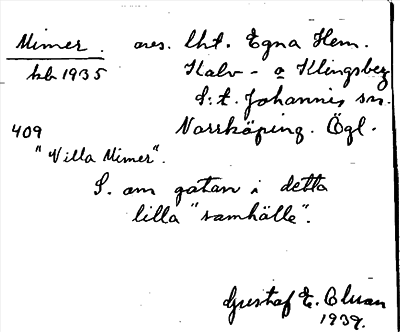 Mimer. avs. lht. Egna Hem.
hb 1935 Kalv- o Klingsberg
S:t. Johannis sn.
409 Norrköping. Ögl.
"Villa Mimer".
S. om gatan i detta
lilla "samhälle".
Gustaf E. Olsson
1939.